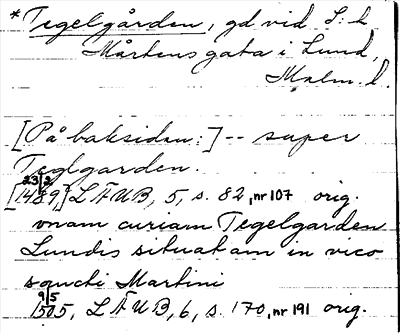 *Tegelgården, gd vid S:t
Mårtens gata i Lund,
Malm. l.
[På baksidan:] -- super
Teglgarden.
[14 23/2 89,] LÄUB, 5, s. 82, nr 107 orig.
vnam curiam Tegelgarden
Lundis situatam in vico
sancti Martini
9/5 1505, LÄUB, 6, s. 170, nr 191 orig.